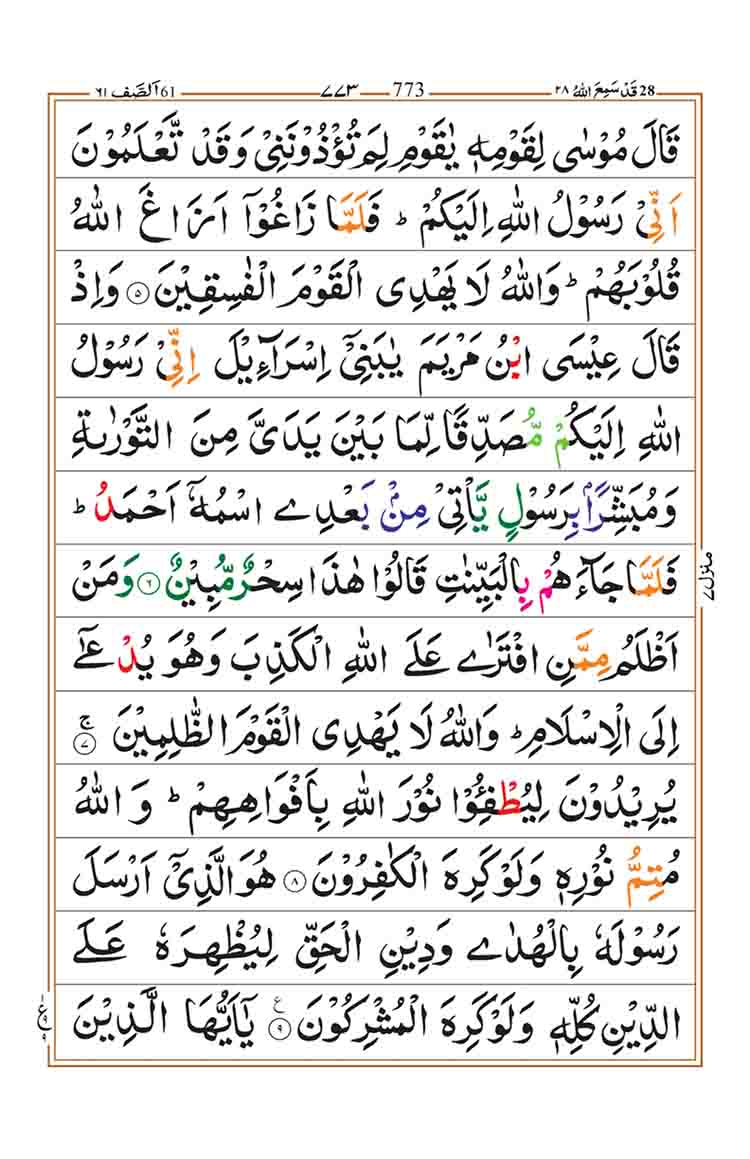 28 قَدۡ سَمِعَ اللهُ ٢٨ 773 ٧٧٣ 61 اَلصَّف ٦١
قَالَ مُوْسٰى لِقَوْمِهٖ يٰقَوْمِ لِمَ تُؤْذُوْنَنِىْ وَقَدْ تَّعْلَمُوْنَ
اَنِّىْ رَسُوْلُ اللهِ اِلَيْكُمْ ؕ فَلَمَّا زَاغُوْۤا اَزَاغَ اللهُ
قُلُوْبَهُمْ ؕ وَاللهُ لَا يَهْدِى الْقَوْمَ الْفٰسِقِيْنَ ۝٥ وَاِذْ
قَالَ عِيْسَى ابْنُ مَرْيَمَ يٰبَنِىْۤ اِسْرَآءِيْلَ اِنِّىْ رَسُوْلُ
اللهِ اِلَيْكُمْ مُّصَدِّقًا لِّمَا بَيْنَ يَدَىَّ مِنَ التَّوْرٰىةِ
وَمُبَشِّرًاۢ بِرَسُوْلٍ يَّاْتِىْ مِنْۢ بَعْدِے اسْمُهٗۤ اَحْمَدُ ؕ
فَلَمَّا جَآءَهُمْ بِالْبَيِّنٰتِ قَالُوْا هٰذَا سِحْرٌ مُّبِيْنٌ ۝٦ وَمَنْ
اَظْلَمُ مِمَّنِ افْتَرٰے عَلَے اللهِ الْكَذِبَ وَهُوَ يُدْعٰۤے
اِلَى الْاِسْلَامِ ؕ وَاللهُ لَا يَهْدِى الْقَوْمَ الظّٰلِمِيْنَ ۚ۝٧
يُرِيْدُوْنَ لِيُطْفِـُٔوْا نُوْرَ اللهِ بِاَفْوَاهِهِمْ ؕ وَاللهُ
مُتِمُّ نُوْرِهٖ وَلَوْ كَرِهَ الْكٰفِرُوْنَ ۝٨ هُوَ الَّذِىْۤ اَرْسَلَ
رَسُوْلَهٗ بِالْهُدٰے وَدِيْنِ الْحَقِّ لِيُظْهِرَهٗ عَلَے
الدِّيْنِ كُلِّهٖ وَلَوْ كَرِهَ الْمُشْرِكُوْنَ ۝٩ ع يٰۤاَيُّهَا الَّذِيْنَ
منزل ٧
ع ٩ ٩